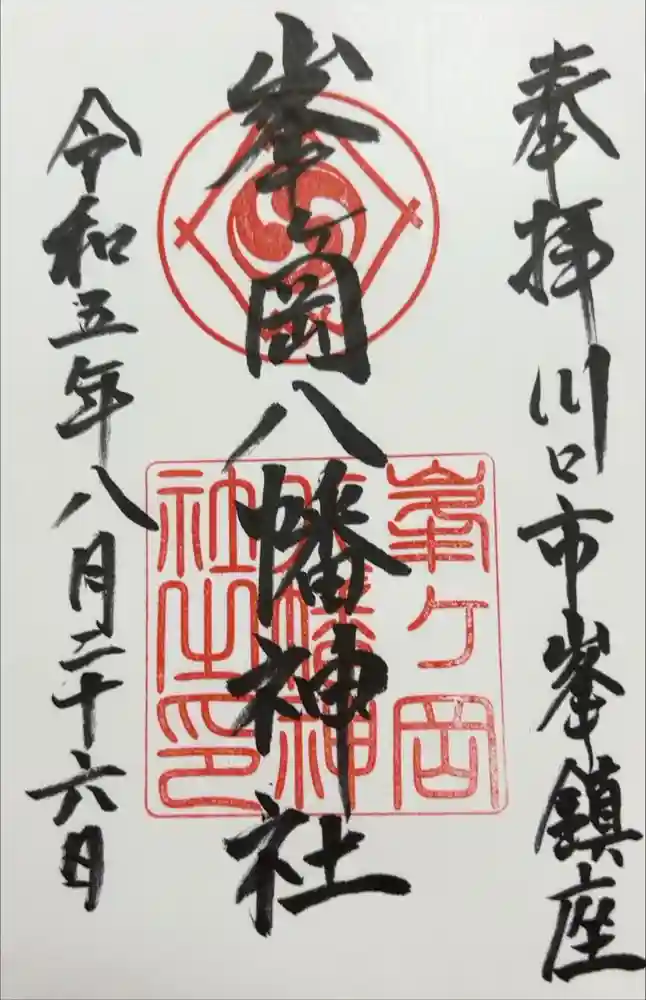 奉拝 川口市峯鎮座
峯ヶ岡八幡神社
峯ヶ岡
八幡神
社之印
令和五年八月二十六日